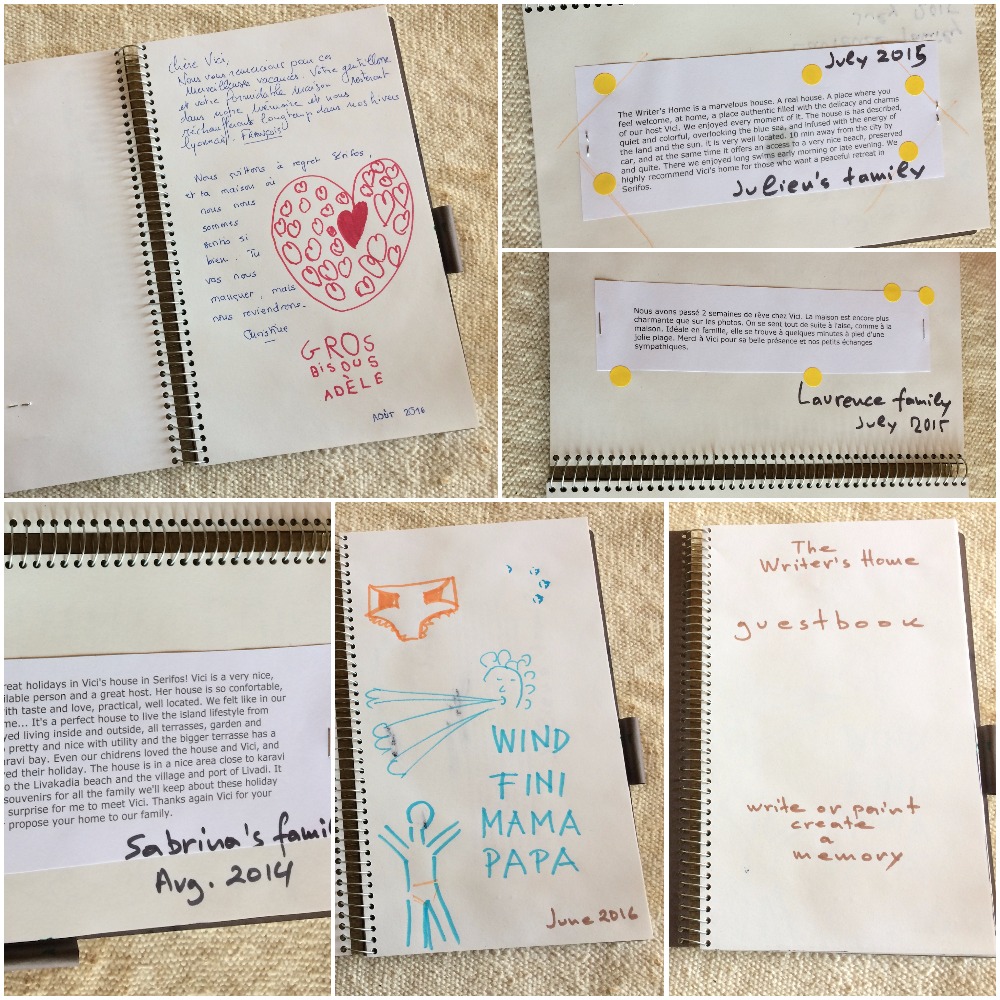 chère Vici,
Nous vous remercions pour ces
merveilleuses vacances. Votre gentillesse
et votre formidable maison resteront
dans notre mémoire et nous
réchaufferont longtemps dans nos hivers
lyonnais. François
Nous quittons à regret Sérifos,
et ta maison où
nous nous
sommes
sentis si
bien. Tu
vas nous
manquer, mais
nous reviendrons.
Christine
GROS
BISOUS
ADÈLE
AOÛT 2016
July 2015
The Writer's Home is a marvelous house. A real house. A place where you
feel welcome, at home, a place authentic filled with the delicacy and charms
of our host Vici. We enjoyed every moment of it. The house has described,
quiet and colorful, overlooking the blue sea, and infused with the energy of
the land and the sun. It is very well located. 10 min away from the city by
car, and at the same time it offers an access to a very nice beach, preserved
and quite. There we enjoyed long swims early morning or late evening. We
highly recommend Vici's home for those who want a peaceful retreat in
Serifos.
Julien's family
Nous avons passé 2 semaines de rêve chez Vici. La maison est encore plus
charmante que sur les photos. On se sent tout de suite à l'aise, comme à la
maison. Idéale en famille, elle se trouve à quelques minutes à pied d'une
jolie plage. Merci à Vici pour sa belle présence et nos petits échanges
sympathiques.
Laurence family
July 2015
reat holidays in Vici's house in Serifos! Vici is a very nice,
ilable person and a great host. Her house is so confortable,
ith taste and love, practical, well located. We felt like in our
me... It's a perfect house to live the island lifestyle from
yed living inside and outside, all terrasses, garden and
pretty and nice with utility and the bigger terrasse has a
aravi bay. Even our chidrens loved the house and Vici, and
red their holiday. The house is in a nice area close to karavi
o the Livakadia beach and the village and port of Livadi. It
souvenirs for all the family we'll keep about these holiday
surprise for me to meet Vici. Thanks again Vici for your
propose your home to our family.
Sabrina's famil
Avg. 2014
WIND
FINI
MAMA
PAPA
June 2016
The
Writer's Home
guestbook
write or paint
create
a
memory